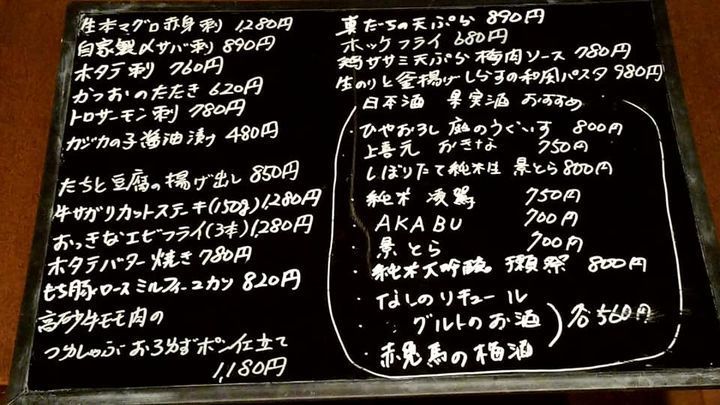 生本マグロ赤身刺 1,280円
自家製〆サバ刺 890円
ホタテ刺 760円
かつおのたたき 620円
トロサーモン刺 780円
カジカの子醤油漬け 480円
たちと豆腐の揚げ出し 850円
牛サガリカットステーキ(150g) 1,280円
おっきなエビフライ(3本) 1,280円
ホタテバター焼き 780円
もち豚ロースミルフィーユカツ 820円
高砂牛モモ肉の
つめしゃぶ おろめずポン仕立て
1,180円
真たちの天ぷら 890円
ホッケフライ 680円
鶏ササミ天ぷら 梅肉ソース 780円
生のりと釜揚げしらすの和風パスタ 980円
日本酒 果実酒 おすすめ
・ひやおろし 庭のうぐいす 800円
・上喜元 おきな 750円
・しぼりたて純米生 景とら 800円
・純米 凌駕 750円
・AKABU 700円
・景とら 700円
・純米大吟醸 獺祭 800円
・なしのリキュール
・グルトのお酒
・赤兎馬の梅酒
各560円